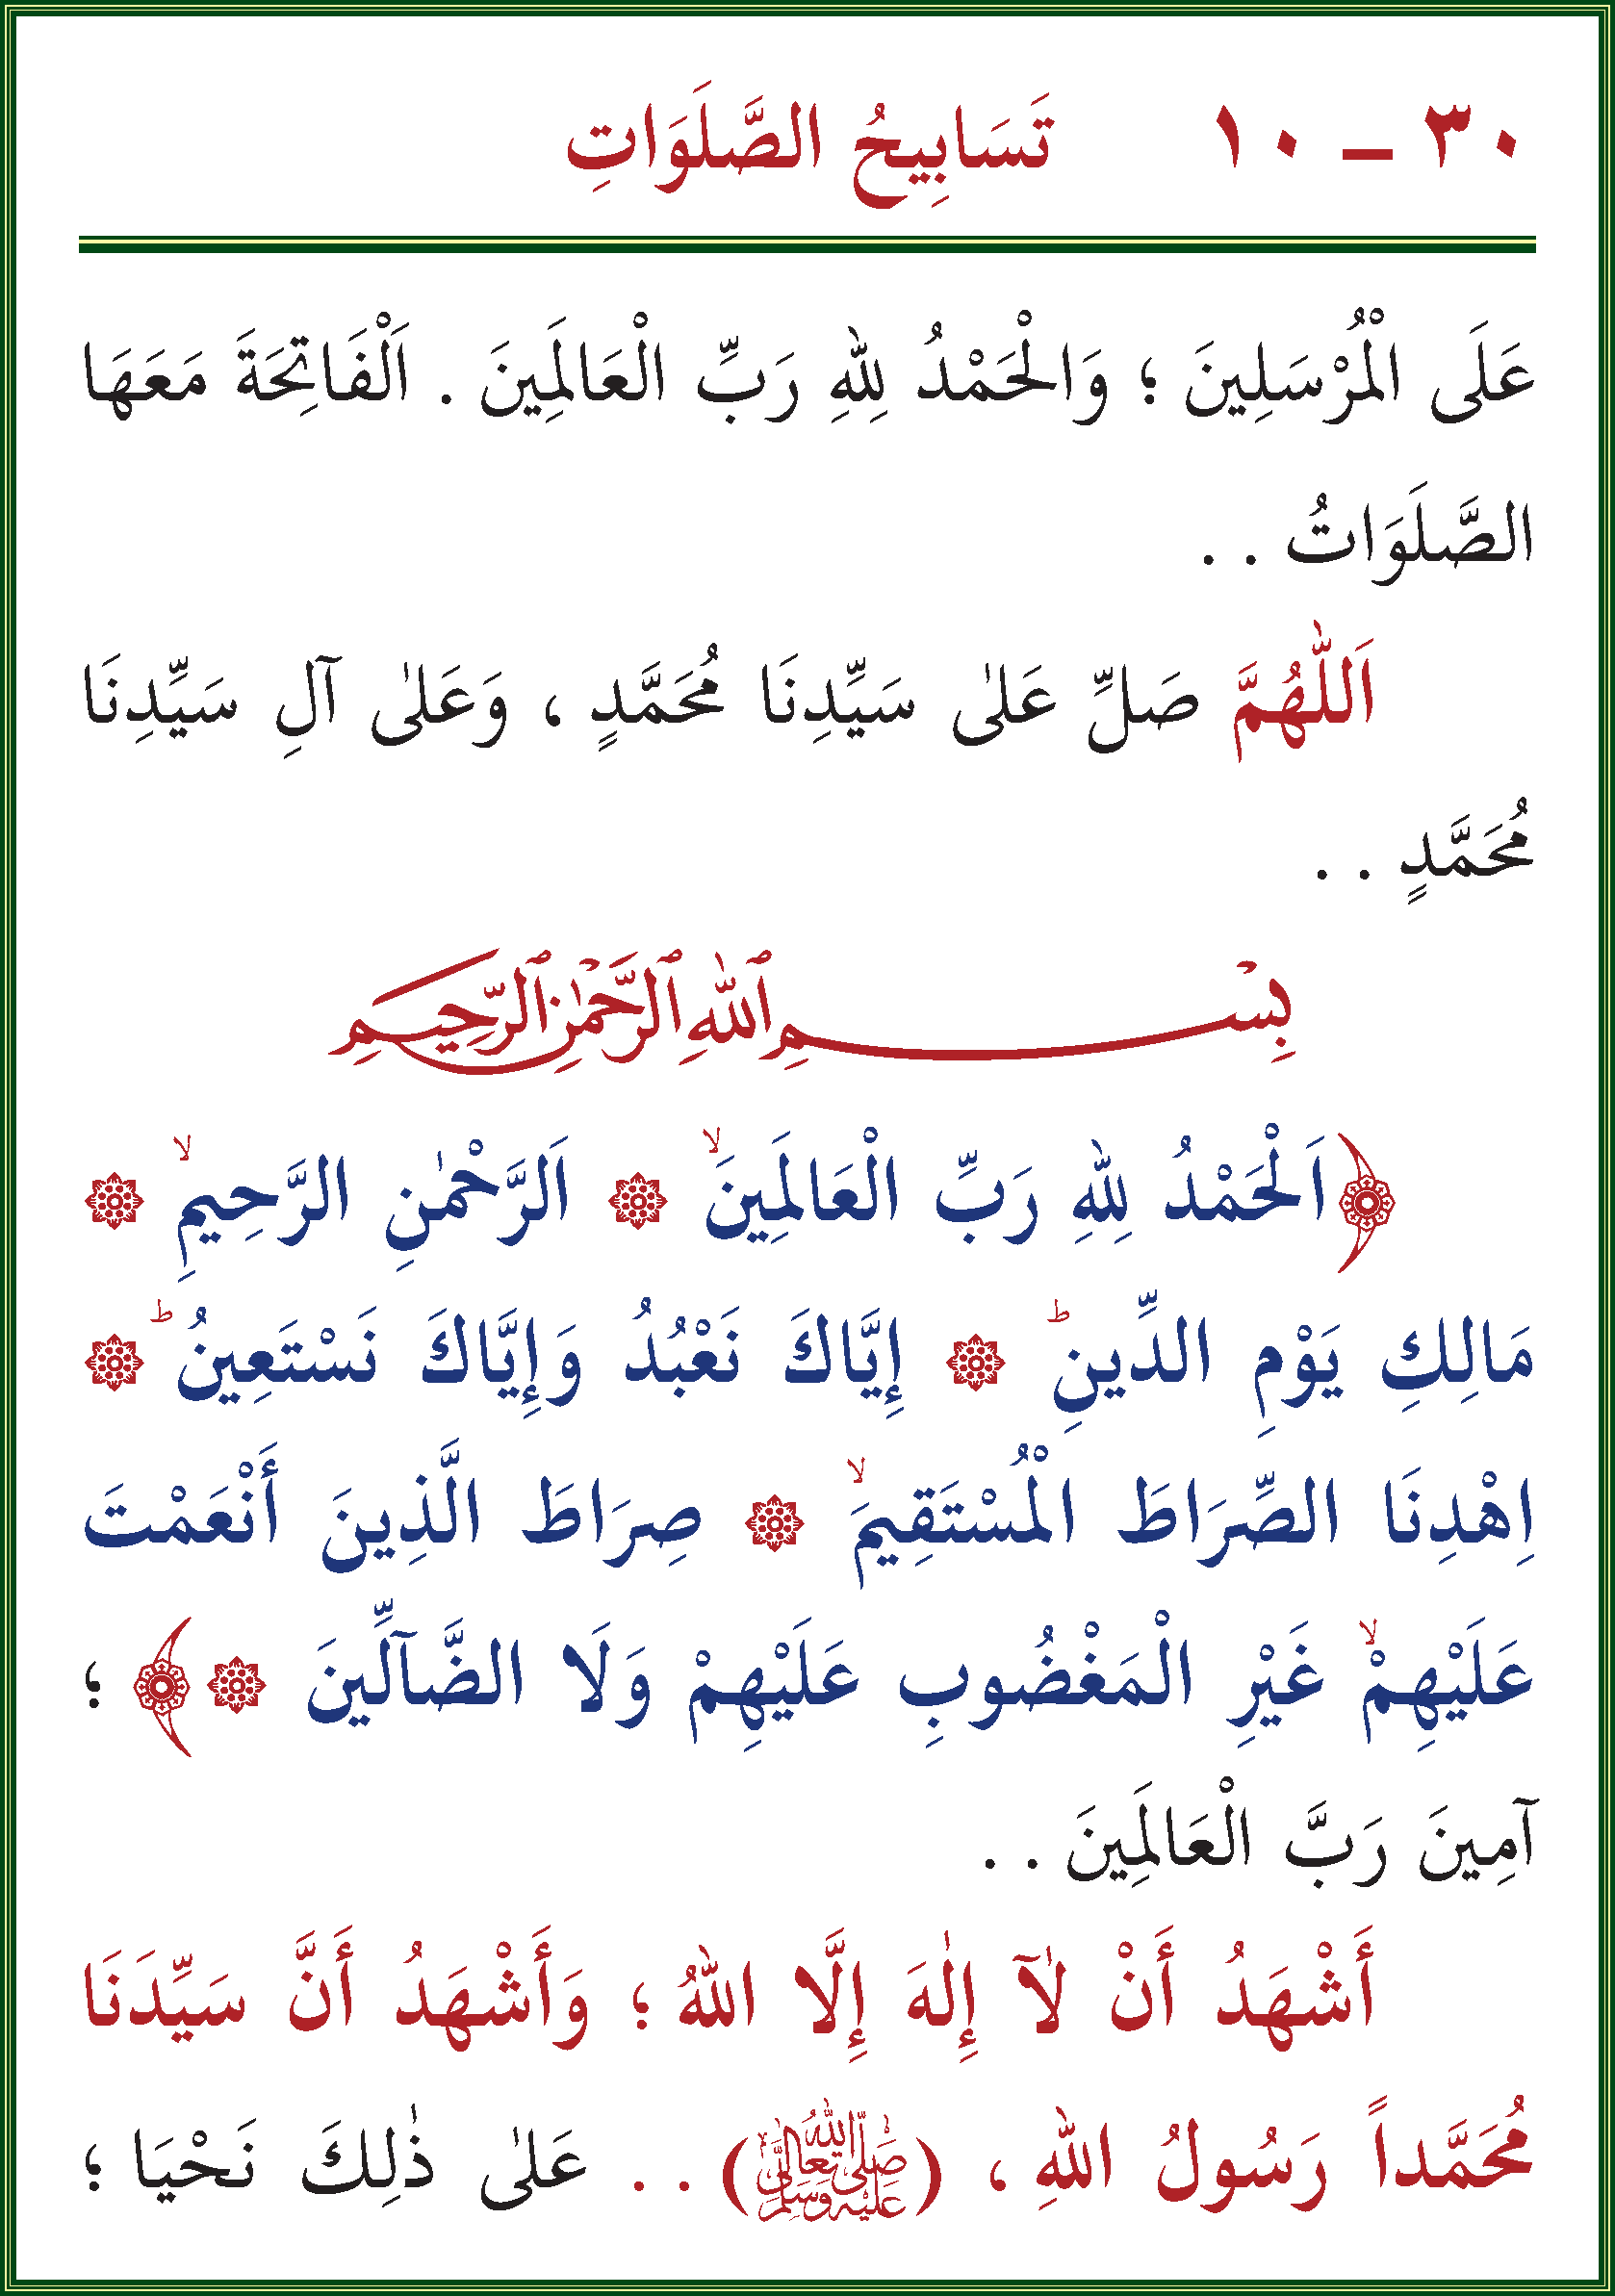 ٣٠ ـ ١٠ تَسَابِيحُ الصَّلَوَاتِ
عَلَى الْمُرْسَلِينَ ؛ وَالْحَمْدُ لِلهِ رَبِّ الْعَالَمِينَ . اَلْفَاتِحَةَ مَعَهَا
الصَّلَوَاتُ . .
اَللّٰهُمَّ صَلِّ عَلىٰ سَيِّدِنَا مُحَمَّدٍ ، وَعَلىٰ آلِ سَيِّدِنَا
مُحَمَّدٍ . .
بِسْمِ ٱللهِ ٱلرَّحْمٰنِ ٱلرَّحِيمِ
﴿اَلْحَمْدُ لِلهِ رَبِّ الْعَالَمِينَۙ ۞ اَلرَّحْمٰنِ الرَّحِيمِۙ ۞
مَالِكِ يَوْمِ الدِّينِؕ ۞ إِيَّاكَ نَعْبُدُ وَإِيَّاكَ نَسْتَعِينُؕ ۞
اِهْدِنَا الصِّرَاطَ الْمُسْتَقِيمَۙ ۞ صِرَاطَ الَّذِينَ أَنْعَمْتَ
عَلَيْهِمْۙ غَيْرِ الْمَغْضُوبِ عَلَيْهِمْ وَلَا الضَّآلِّينَ ۞﴾ ؛
آمِينَ رَبَّ الْعَالَمِينَ . .
أَشْهَدُ أَنْ لَآ إِلٰهَ إِلَّا اللهُ ؛ وَأَشْهَدُ أَنَّ سَيِّدَنَا
مُحَمَّداً رَسُولُ اللهِ ، (صَلَّى اللهُ تَعَالىٰ عَلَيْهِ وَسَلَّمَ) . . عَلىٰ ذٰلِكَ نَحْيَا ؛